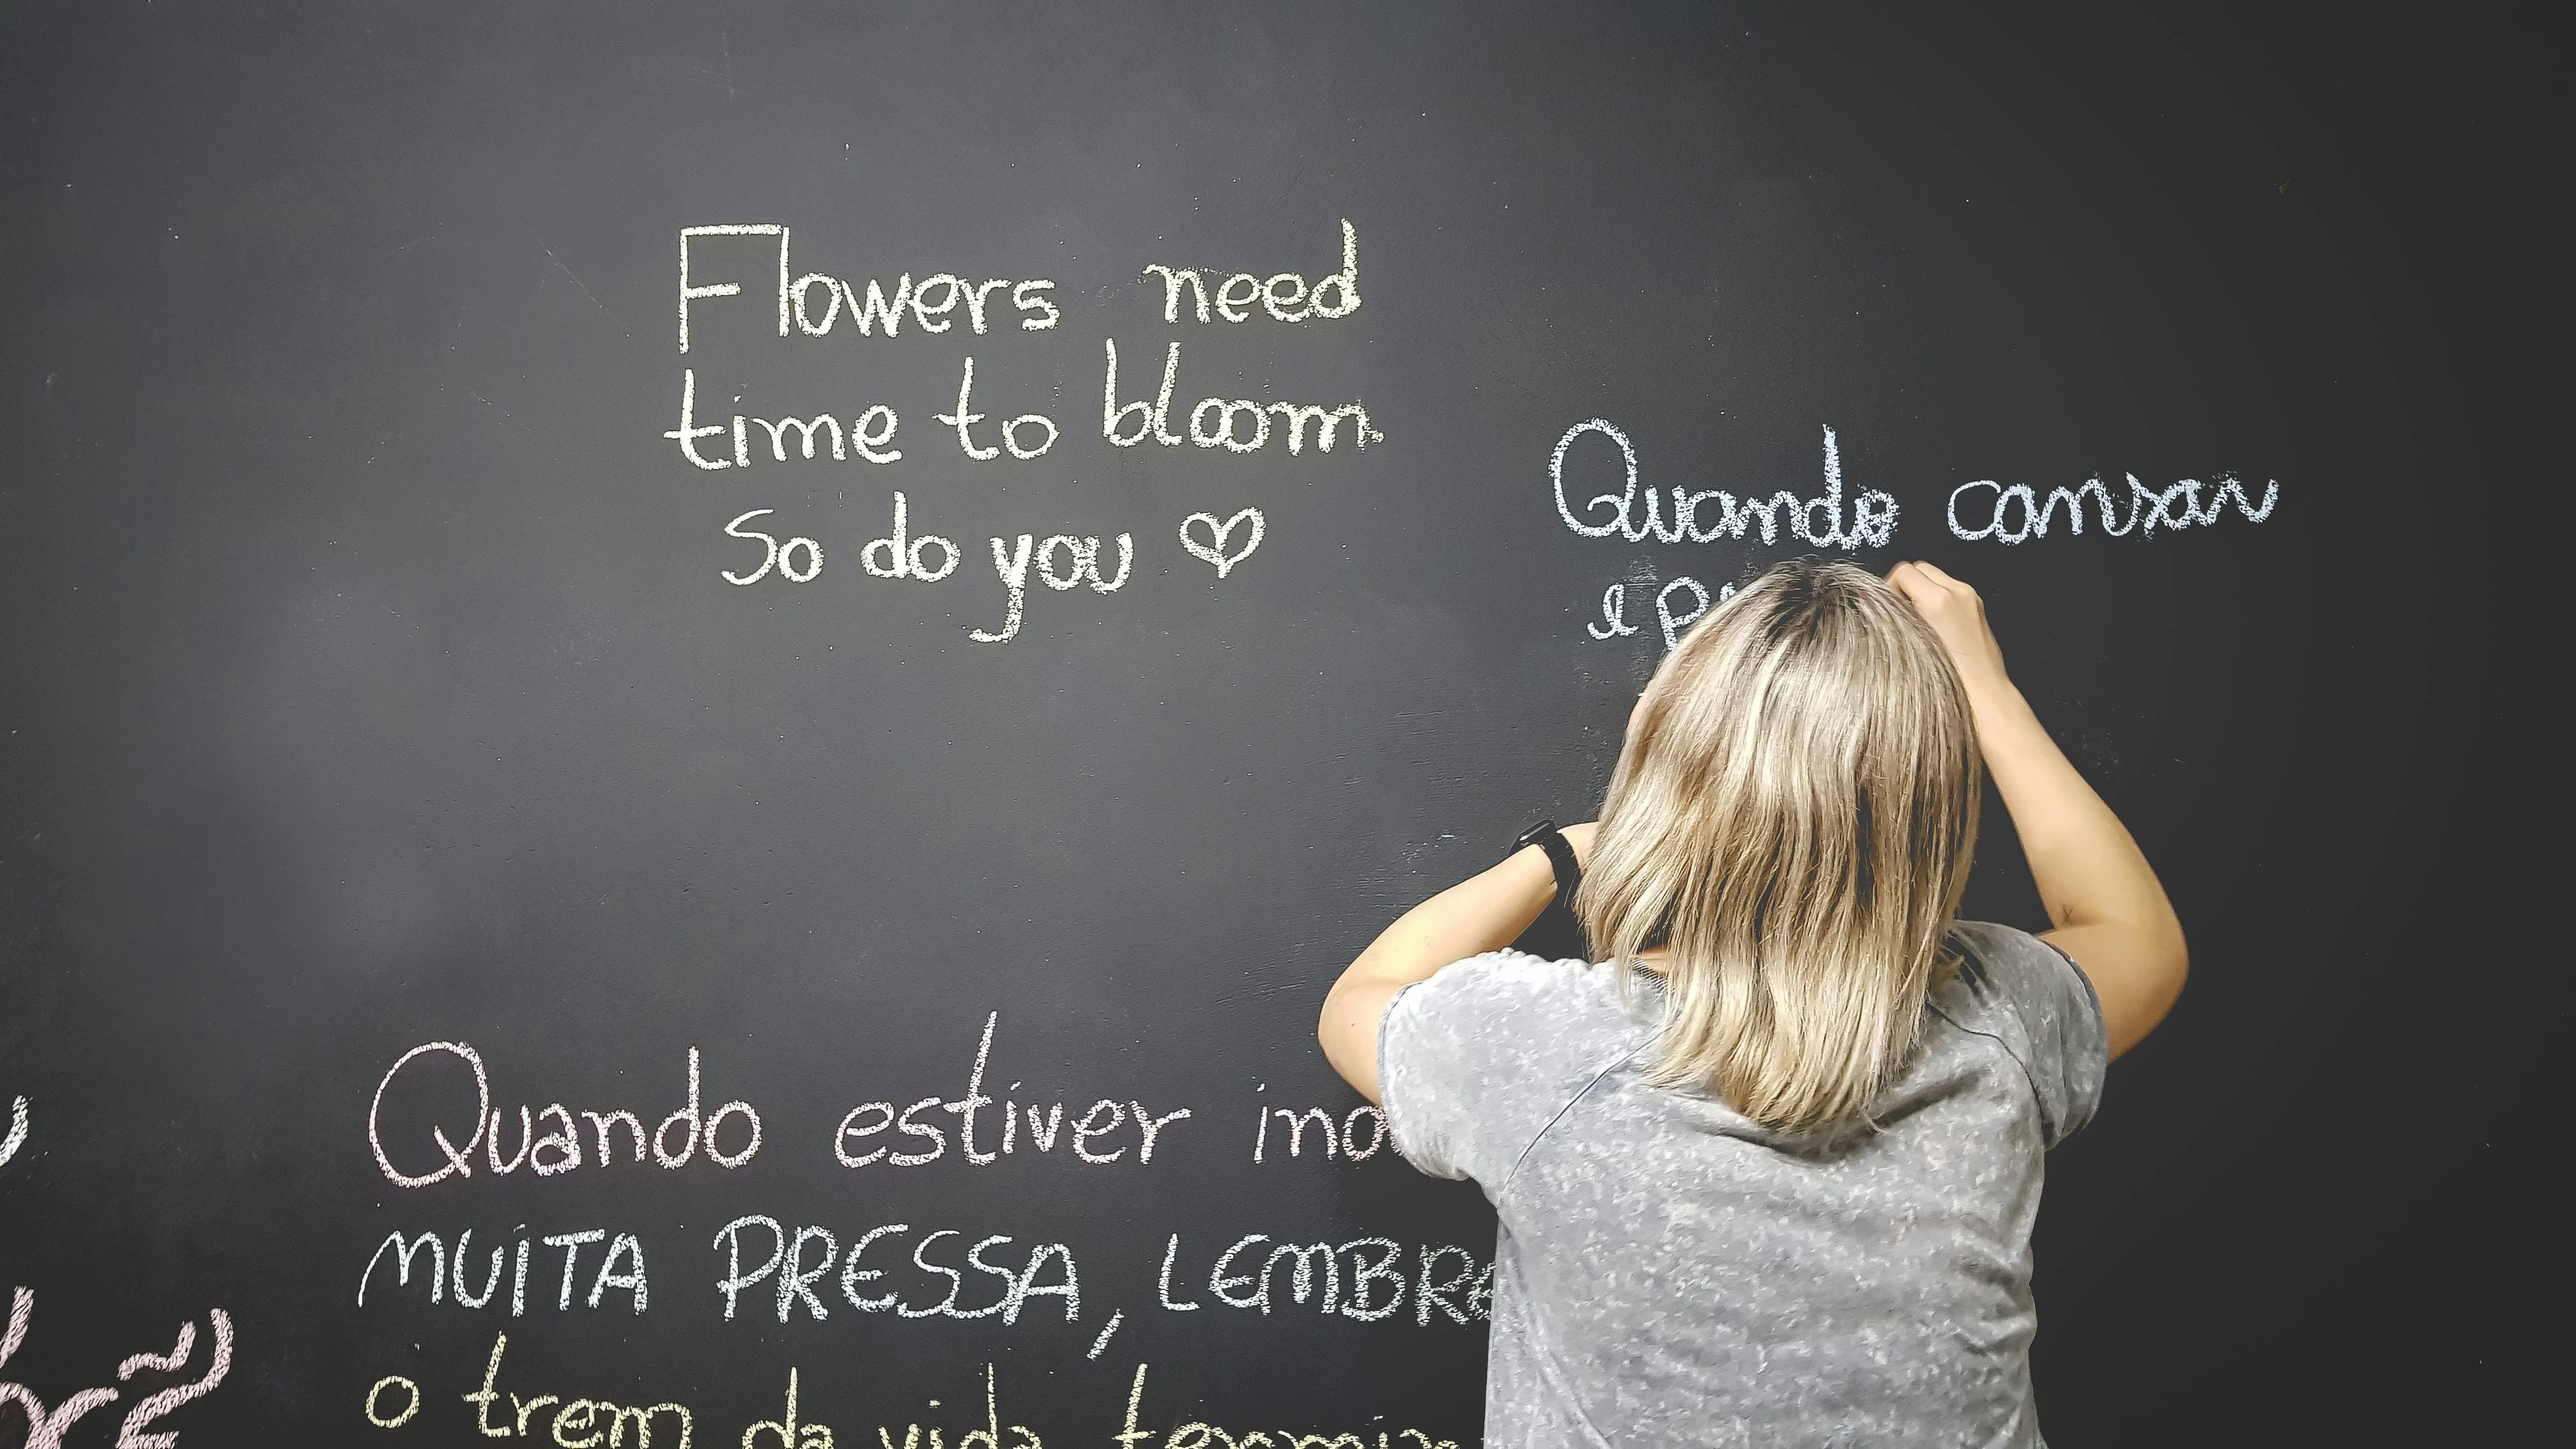 Flowers need
time to bloom.
So do you ♡
Quando cansar
e
Quando estiver
MUiTA PRESSA, LEMBRE
o trem da vida